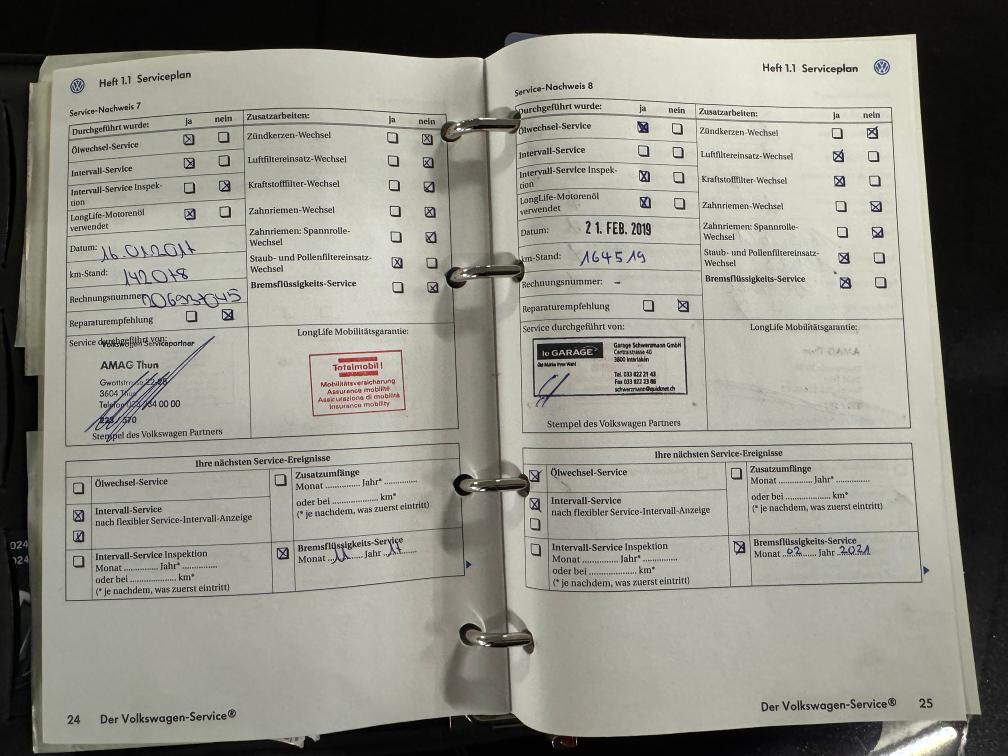 Heft 1.1 Serviceplan
Service-Nachweis 7
Durchgeführt wurde: ja nein
Ölwechsel-Service
Intervall-Service
Intervall-Service Inspek-
tion
LongLife-Motorenöl
verwendet
Datum: 16.01.2017
km-Stand: 142078
Rechnungsnummer
Reparaturempfehlung
Zusatzarbeiten: ja nein
Zündkerzen-Wechsel
Luftfiltereinsatz-Wechsel
Kraftstofffilter-Wechsel
Zahnriemen-Wechsel
Zahnriemen: Spannrolle-
Wechsel
Staub- und Pollenfiltereinsatz-
Wechsel
Bremsflüssigkeits-Service
Service durchgeführt von:
Volkswagen Servicepartner
AMAG Thun
Gwattstrasse
3604 Thun
Telefon 00 00
Stempel des Volkswagen Partners
LongLife Mobilitätsgarantie:
Totalmobil!
Mobilitätsversicherung
Assurance mobilité
Assicurazione di mobilità
Insurance mobility
Ihre nächsten Service-Ereignisse
Ölwechsel-Service
Intervall-Service
nach flexibler Service-Intervall-Anzeige
Intervall-Service Inspektion
Monat ............ Jahr* ............
oder bei ............ km*
(* je nachdem, was zuerst eintritt)
Zusatzumfänge
Monat ............ Jahr* ............
oder bei ............ km*
(* je nachdem, was zuerst eintritt)
Bremsflüssigkeits-Service
Monat 11 Jahr 17
24 Der Volkswagen-Service®
Heft 1.1 Serviceplan
Service-Nachweis 8
Durchgeführt wurde: ja nein
Ölwechsel-Service
Intervall-Service
Intervall-Service Inspek-
tion
LongLife-Motorenöl
verwendet
Datum: 21. FEB. 2019
km-Stand: 164519
Rechnungsnummer: -
Reparaturempfehlung
Zusatzarbeiten: ja nein
Zündkerzen-Wechsel
Luftfiltereinsatz-Wechsel
Kraftstofffilter-Wechsel
Zahnriemen-Wechsel
Zahnriemen: Spannrolle-
Wechsel
Staub- und Pollenfiltereinsatz-
Wechsel
Bremsflüssigkeits-Service
Service durchgeführt von:
le GARAGE
Die Marke Ihrer Wahl
Garage Schwerzmann GmbH
Centralstrasse 40
3800 Interlaken
Tel. 033 822 21 43
Fax 033 822 23 86
schwerzmann@quicknet.ch
Stempel des Volkswagen Partners
LongLife Mobilitätsgarantie:
Ihre nächsten Service-Ereignisse
Ölwechsel-Service
Intervall-Service
nach flexibler Service-Intervall-Anzeige
Intervall-Service Inspektion
Monat ............ Jahr* ............
oder bei ............ km*
(* je nachdem, was zuerst eintritt)
Zusatzumfänge
Monat ............ Jahr* ............
oder bei ............ km*
(* je nachdem, was zuerst eintritt)
Bremsflüssigkeits-Service
Monat 02 Jahr 2021
Der Volkswagen-Service® 25